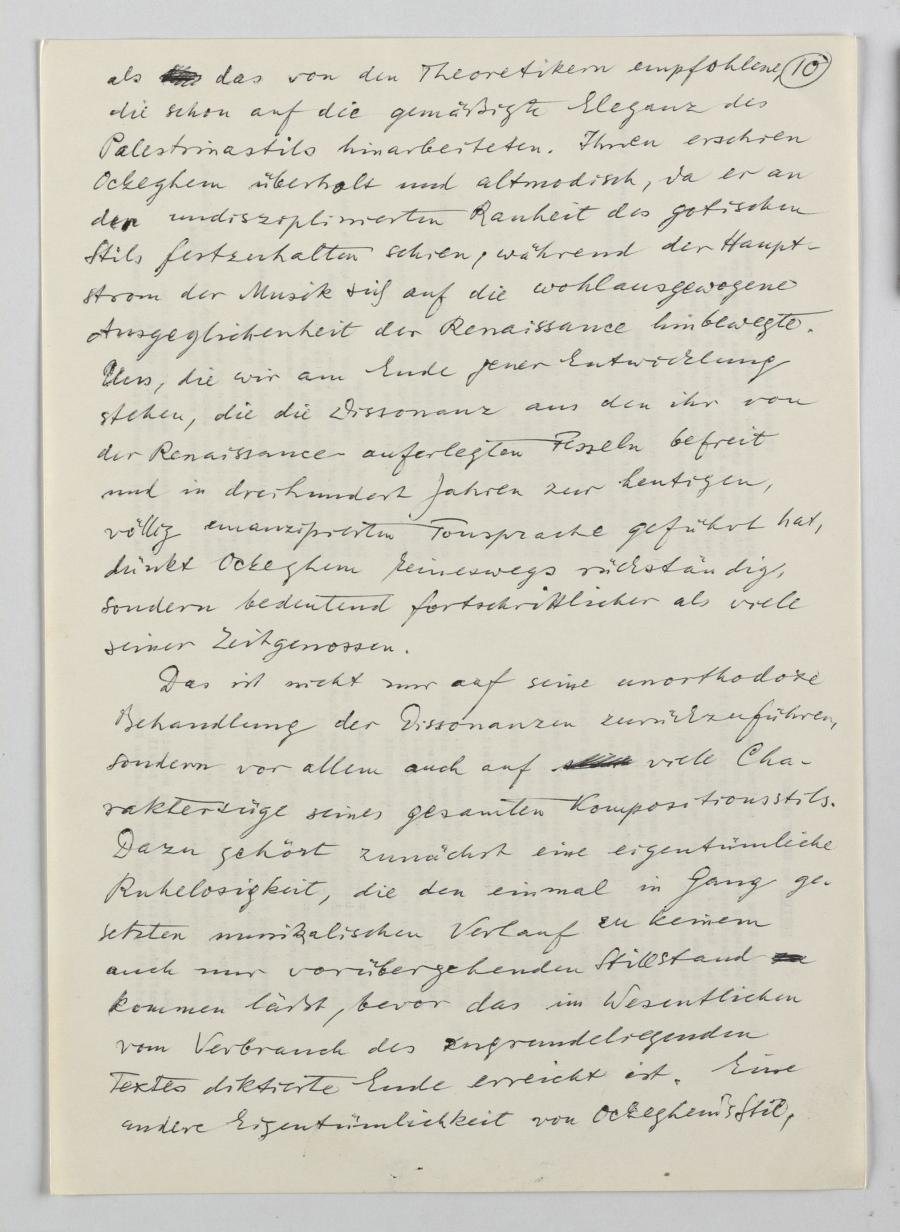 als das von den Theoretikern empfohlene, 10
die schon auf die gemäßigte Eleganz des
Palestrinastils hinarbeiteten. Ihnen erschien
Ockeghem überholt und altmodisch, da er an
der undisziplinierten Rauheit des gotischen
Stils festzuhalten schien, während der Haupt-
strom der Musik sich auf die wohlausgewogene
Ausgeglichenheit der Renaissance hinbewegte.
Uns, die wir am Ende jener Entwicklung
stehen, die die Dissonanz aus den ihr von
der Renaissance auferlegten Fesseln befreit
und in dreihundert Jahren zur heutigen,
völlig emanzipierten Tonsprache geführt hat,
dünkt Ockeghem keineswegs rückständig,
sondern bedeutend fortschrittlicher als viele
seiner Zeitgenossen.
Das ist nicht nur auf seine unorthodoxe
Behandlung der Dissonanzen zurückzuführen,
sondern vor allem auch auf viele Cha-
rakterzüge seines gesamten Kompositionsstils.
Dazu gehört zunächst eine eigentümliche
Ruhelosigkeit, die den einmal in Gang ge-
setzten musikalischen Verlauf zu keinem
auch nur vorübergehenden Stillstand
kommen läßt, bevor das im Wesentlichen
vom Verbrauch des zugrundeliegenden
Textes diktierte Ende erreicht ist. Eine
andere Eigentümlichkeit von Ockeghem's Stil,